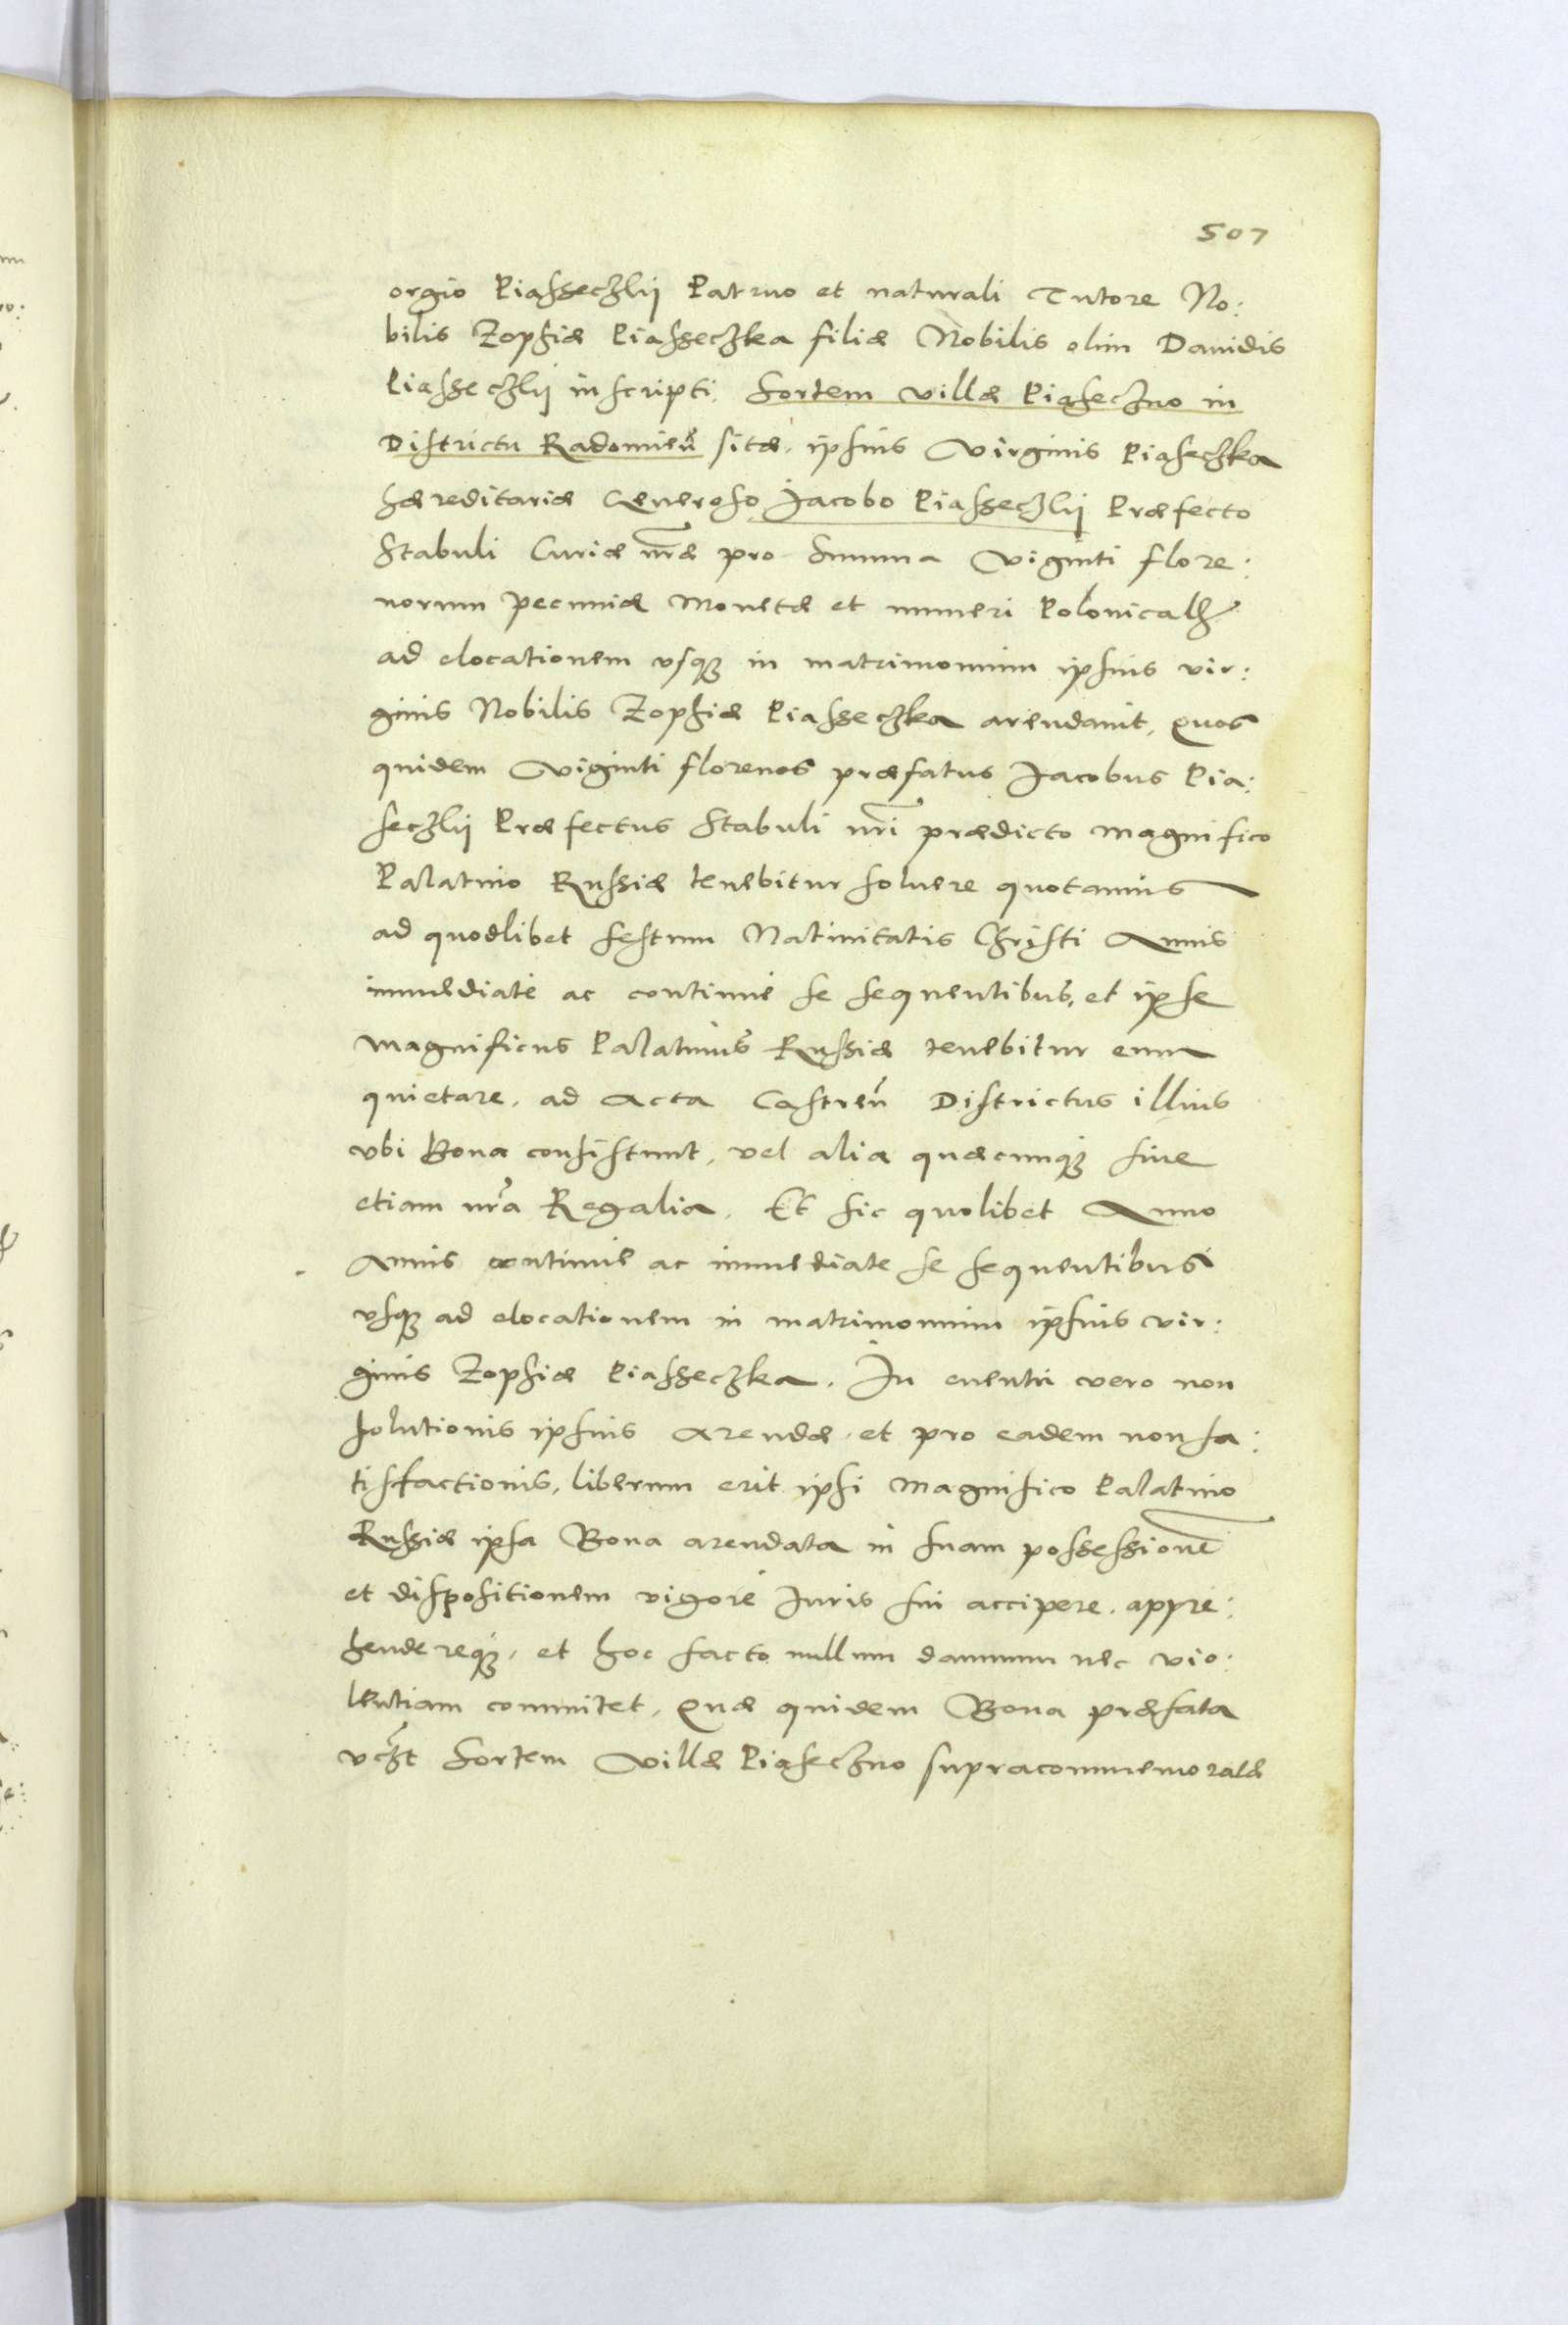 507
orgio Piasseczkij Patruo et naturali Tutore No:
bilis Zophiæ Piasseczka filiæ Nobilis olim Dauidis
Piasseczkij inscripti. Sortem villæ Piaseczno in
Districtu Radomień sitæ, ipsius Virginis Piaseczka
hæreditariæ Generoso Jacobo Piasseczkij Præfecto
Stabuli Curiæ nr̃æ pro Summa Viginti flore:
norum pecuniæ Monetæ et numeri Polonicalis
ad elocationem vsq; in matrimonium ipsius vir:
ginis Nobilis Zophiæ Piasseczka arendauit, Quos
quidem Viginti florenos præfatus Jacobus Pia:
seczkij Præfectus Stabuli nr̃i prædicto Magnifico
Palatino Russiæ tenebitur soluere quotannis
ad quodlibet festum Natiuitatis Christi Annis
immediate ac continue se sequentibus, et ipse
Magnificus Palatinus Russiæ tenebitur eum
quietare, ad Acta Castreñ Districtus illius
vbi Bona consistunt, vel alia quæcunq; siue
etiam nr̃a Regalia. Et sic quolibet Anno
Annis continue ac immediate se sequentibus
vsq; ad elocationem in matrimonium ipsius vir:
ginis Zophiæ Piasseczka. In euentu vero non
solutionis ipsius Arendæ, et pro eadem non sa:
tisfactionis, liberum erit ipsi Magnifico Palatino
Russiæ ipsa Bona arendata in suam possessionẽ
et dispositionem vigore Iuris sui accipere, appre:
hendereq;, et hoc facto nullum damnum nec vio:
lentiam committet, Quæ quidem Bona præfata
vczt Sortem Villæ Piaseczno supracommemoratæ